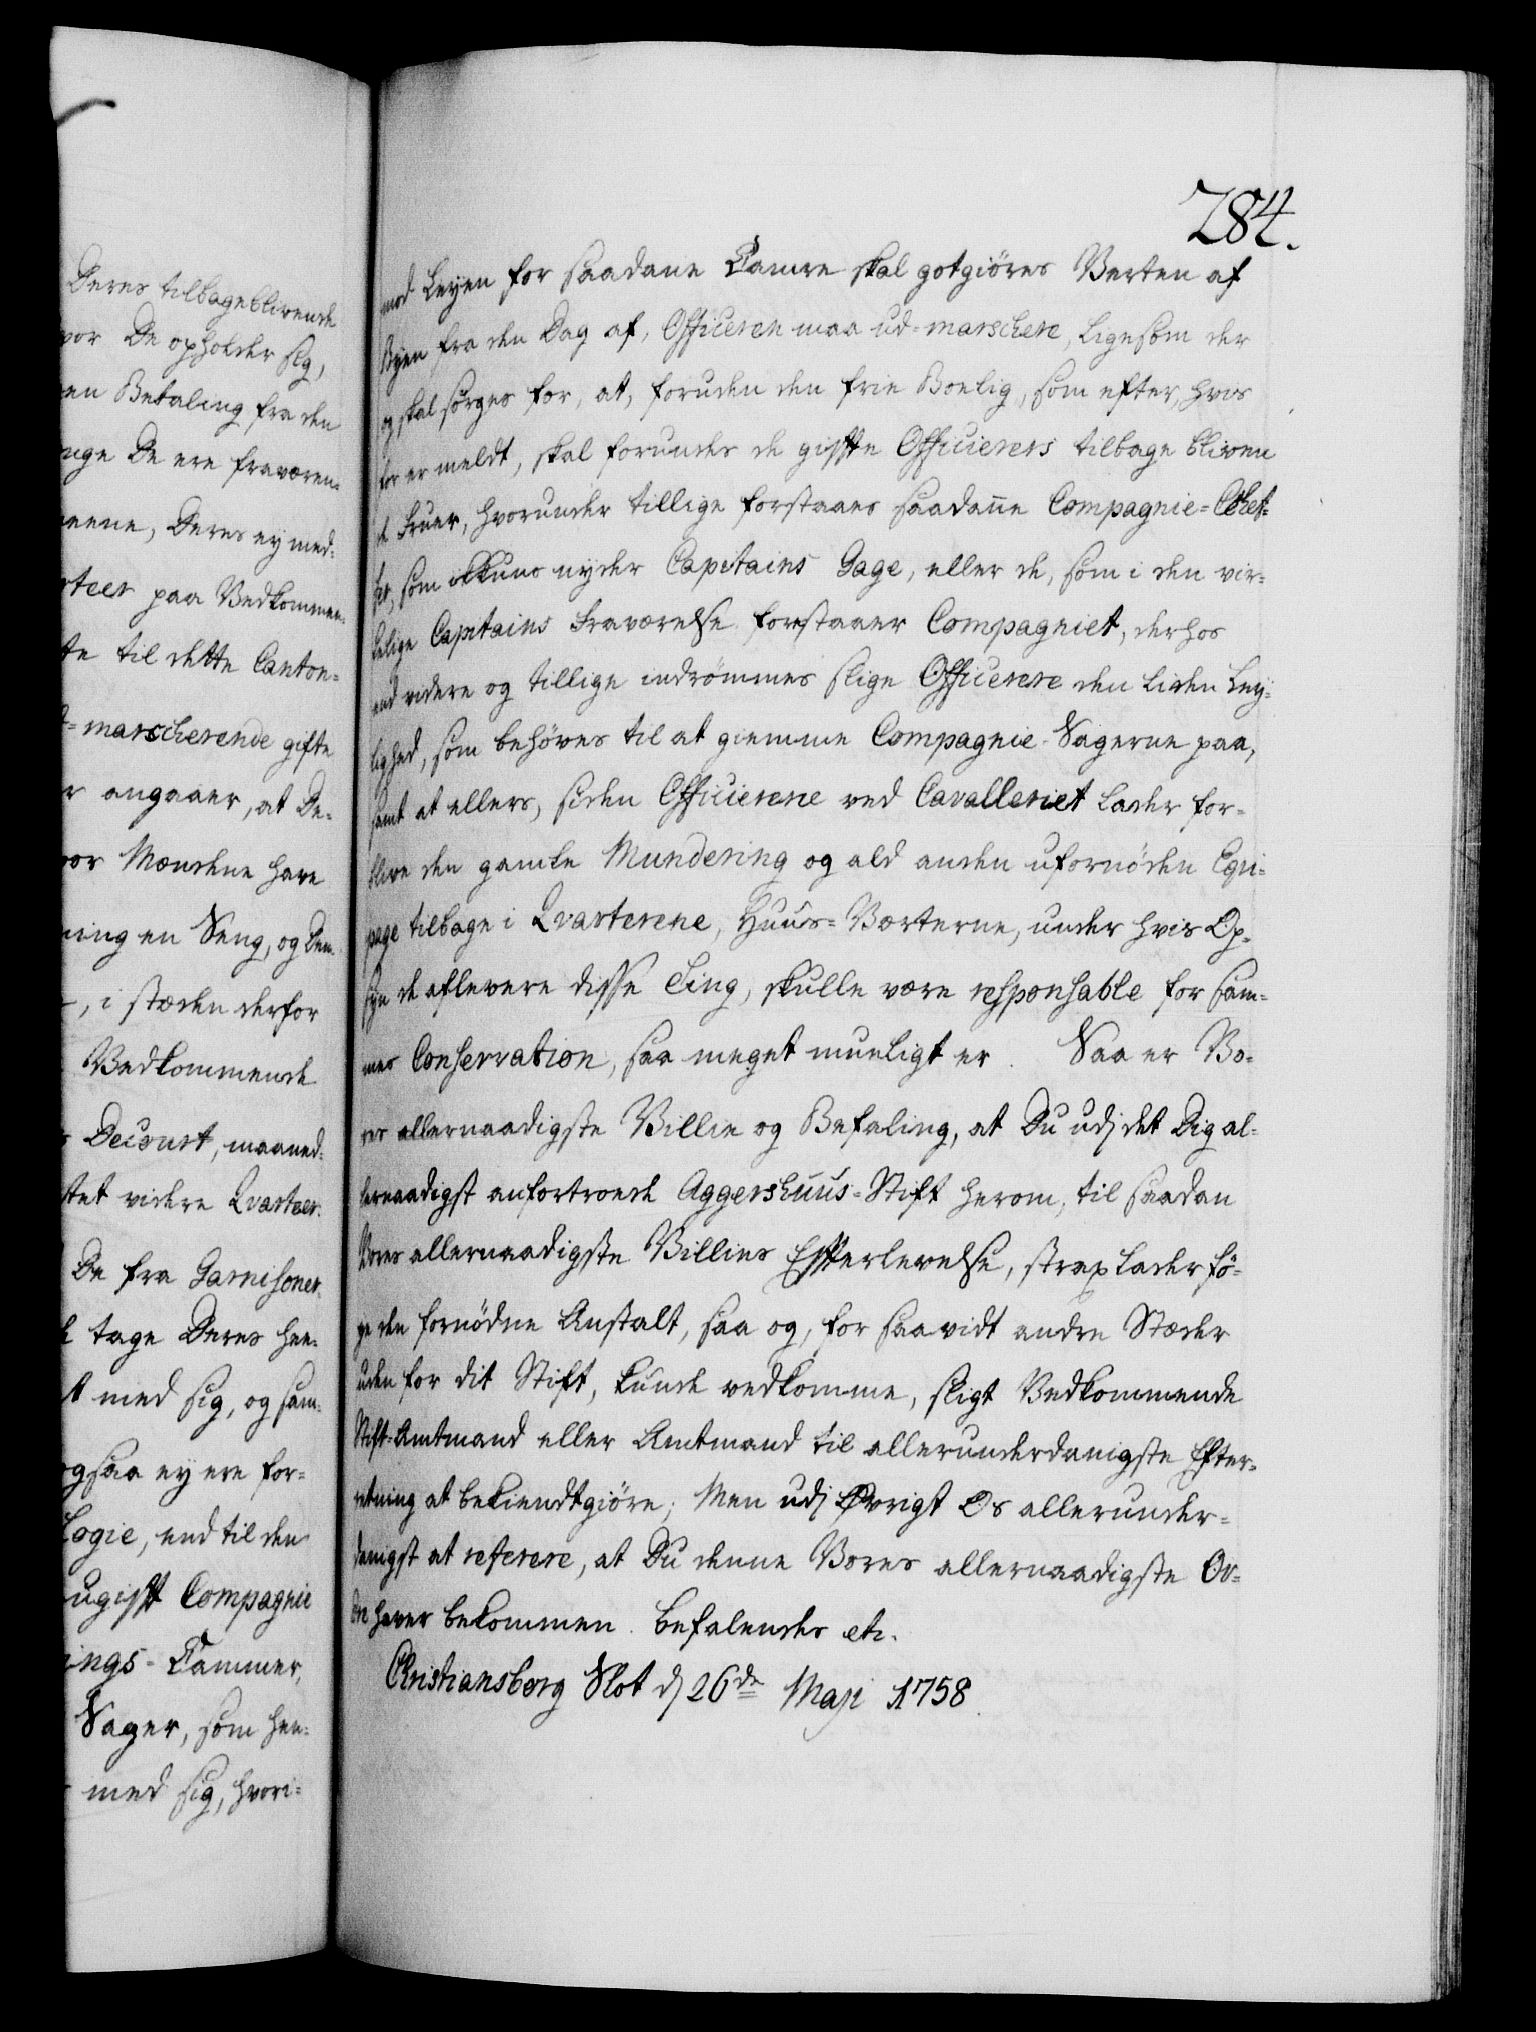 284.
Deres tilbageblivende
vor De opholder sig,
en Betaling fra den
nge De ere fraværen-
eene, Deres ey med-
rteer paa Vedkommen-
te til dette Canton-
d-marscherende gifte
r angaaer, at De-
vor Mændene have
ning en Seng, og den
, i stæden derfor
Vedkommende
Decourt, maaned-
stet videre Qvarteer.
De fra Garnisoner
tage Deres hen-
med sig, og sam-
ogsaa ey ere for-
Logie, end til den
ugifft Compagnie
ings-Cammer,
Sager, som hen-
med sig, hvori-
mod Leyen for saadane Camre skal gotgiöres Verten af
Byen fra den Dag af, Officeren maa ud-marschere, ligesom der
og skal sörges for, at, foruden den frie Boelig, som efter, hvis
for er meldt, skal forundes de giffte Officierers tilbage bliven
de Fruer, hvorunder tillige forstaaes saadanne Compagnie-Chef-
fer, som ikkuns nyder Capitains Gage, eller de, som i den vir-
kelige Capitains Fraværelse forestaaer Compagniet, derhos
end videre og tillige indrömmes slige Officerere den liden Ley-
lighed, som behöves til at giemme Compagnie-Sagerne paa,
samt at ellers, siden Officierene ved Cavalleriet lader for-
blive den gamle Mundering og ald anden ufornöden Equi-
page tilbage i Qvarterene, Huus-Værterne, under hvis Op-
syn de aflevere disse Ting, skulle være responsable for sam-
mes Conservation, saa meget mueligt er. Saa er Vo-
res allernaadigste Villie og Befaling, at Du udj det Dig al-
lernaadigst anfortroede Aggershuus-Stift herom, til saadan
Vores allernaadigste Villies Effterlevelse, strax lader fö-
ye den fornödne Anstalt, saa og, for saavidt andre Stæder
uden for dit Stift, kunde vedkomme, sligt Vedkommende
Stift-Amtmand eller Amtmand til allerunderdanigste Efter-
retning at bekiendtgiöre; Men udj Øvrigt Os allerunder-
danigst at referere, at Du denne Vores allernaadigste Or-
dre haver bekommen. Befalendes etc.
Christiansborg Slot d. 26de Maji 1758.